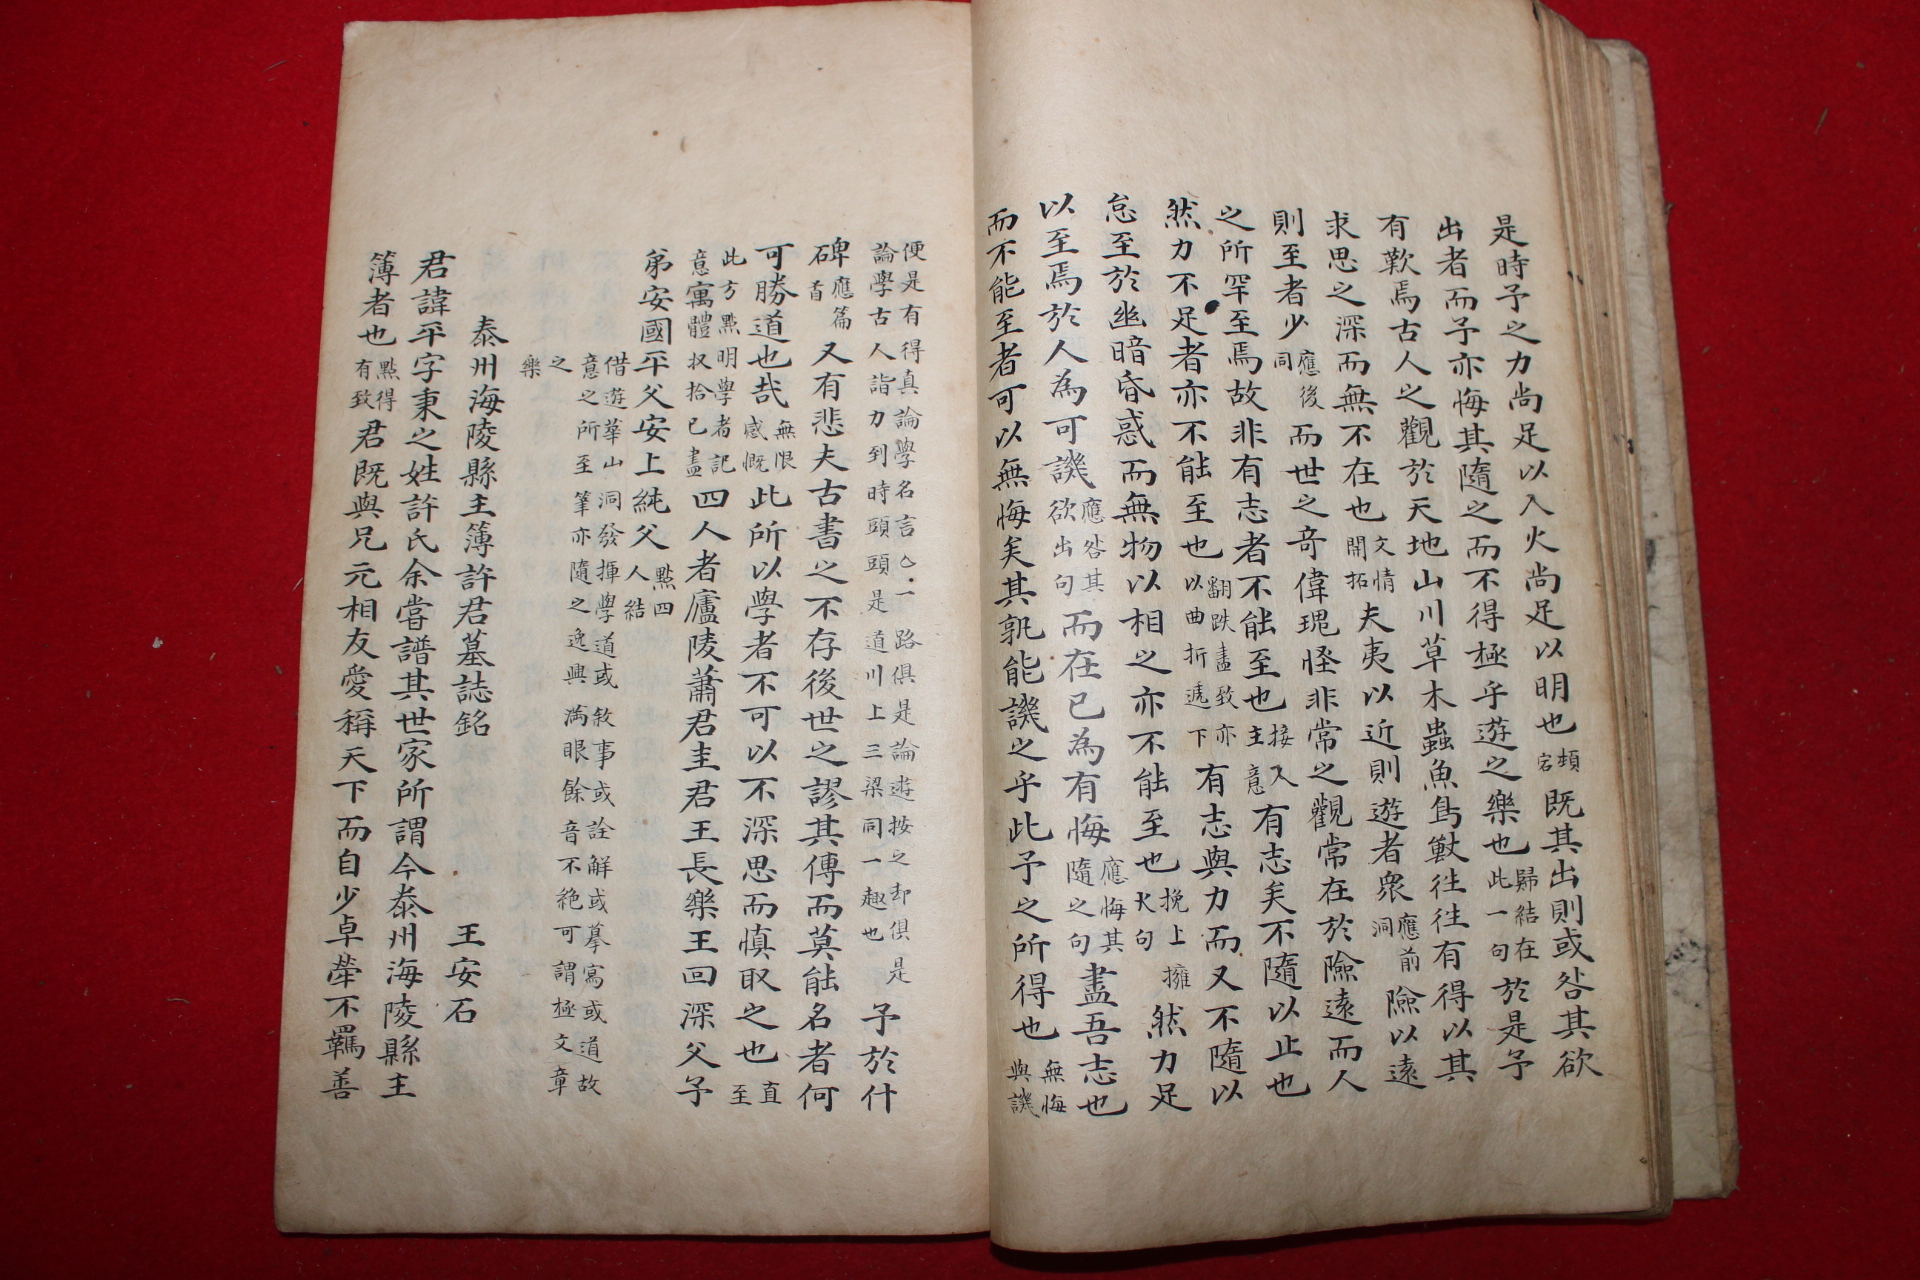 是時予之力尚足以入火尚足以明也頓宕既其出則或咎其欲
出者而予亦悔其隨之而不得極乎遊之樂也歸結在此一句於是予
有歎焉古人之觀於天地山川草木蟲魚鳥獸往往有得以其
求思之深而無不在也文情開拓夫夷以近則遊者衆應前洞險以遠
則至者少應後同而世之奇偉瑰怪非常之觀常在於險遠而人
之所罕至焉故非有志者不能至也接入主意有志矣不隨以止也
然力不足者亦不能至也翻跌盡致亦以曲折遞下有志與力而又不隨以
怠至於幽暗昏惑而無物以相之亦不能至也挽上擁火句然力足
以至焉於人為可譏應咎其欲出句而在已為有悔應悔其隨之句盡吾志也
而不能至者可以無悔矣其孰能譏之乎此予之所得也無悔與譏
便是有得真論學名言○一路俱是論遊按之却俱是論學古人詣力到時頭頭是道川上三梁同一趣也予於什
碑應篇首又有悲夫古書之不存後世之謬其傳而莫能名者何
可勝道也哉無限感慨此所以學者不可以不深思而慎取之也直至
此方點明學者記意寓體収拾已盡四人者廬陵蕭君圭君王長樂王回深父予
弟安國平父安上純父點四人結
借遊華山洞發揮學道或敘事或詮解或摹寫或道故
意之所至筆亦隨之逸興滿眼餘音不絶可謂極文章
之樂
泰州海陵縣主簿許君墓誌銘
王安石
君諱平字秉之姓許氏余嘗譜其世家所謂今泰州海陵縣主
簿者也點得有致君既與兄元相友愛稱天下而自少卓犖不羈善